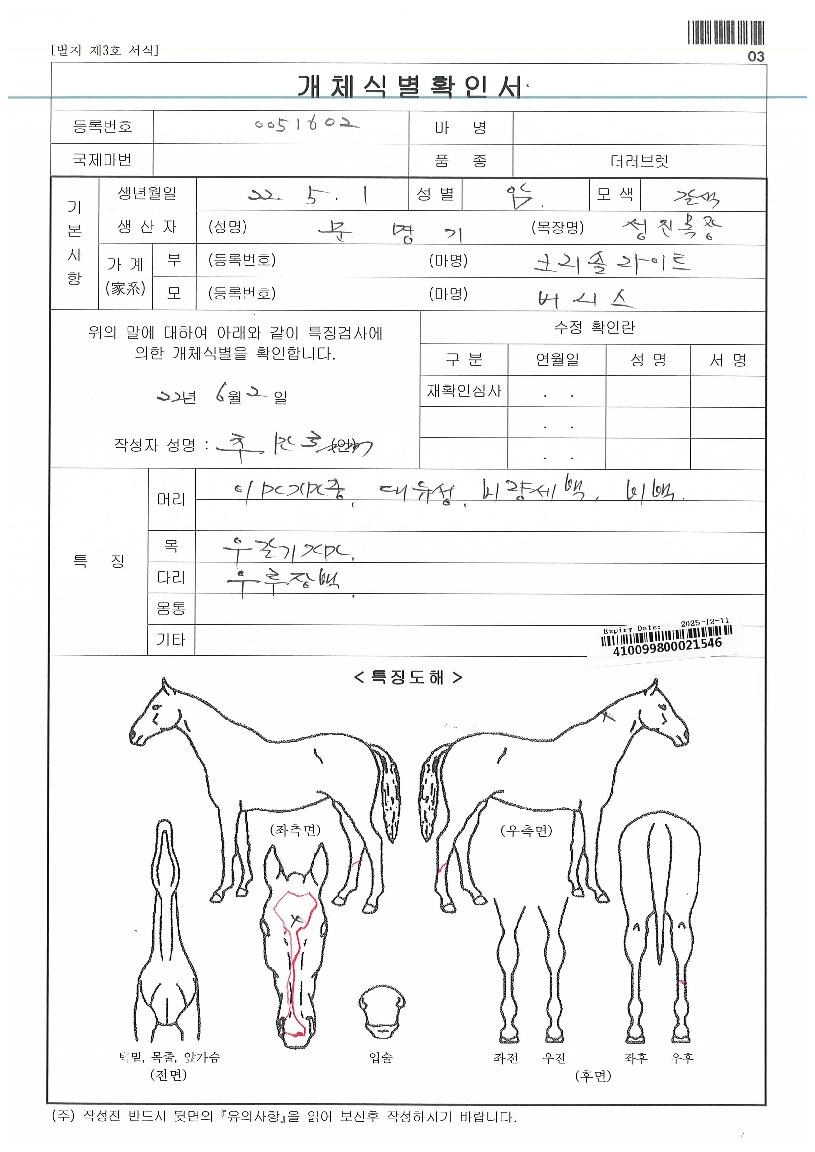 [별지 제3호 서식]
03
개체식별확인서
등록번호 0051602 마 명
국제마번 품 종 더러브렛
기본사항
생년월일 22. 5. 1 성별 암 모색 갈색
생산자 (성명) 문명기 (목장명) 성진목장
가계 (家系) 부 (등록번호) (마명) 코리솔라이트
모 (등록번호) (마명) 버시스
위의 말에 대하여 아래와 같이 특징검사에
의한 개체식별을 확인합니다.
22년 6월 2일
작성자 성명 :
수정 확인란
구 분 연월일 성 명 서 명
재확인심사 . .
. .
. .
특 징
머리 대유성, 비량세백, 비백.
목
다리 우후장백.
몸통
기타
Expiry Date: 2025-12-11
410099800021546
< 특징도해 >
(좌측면) (우측면)
턱밑, 목줄, 앞가슴 입술 좌전 우전 좌후 우후
(전면) (후면)
(주) 작성전 반드시 뒷면의 『유의사항』을 읽어 보신후 작성하시기 바랍니다.